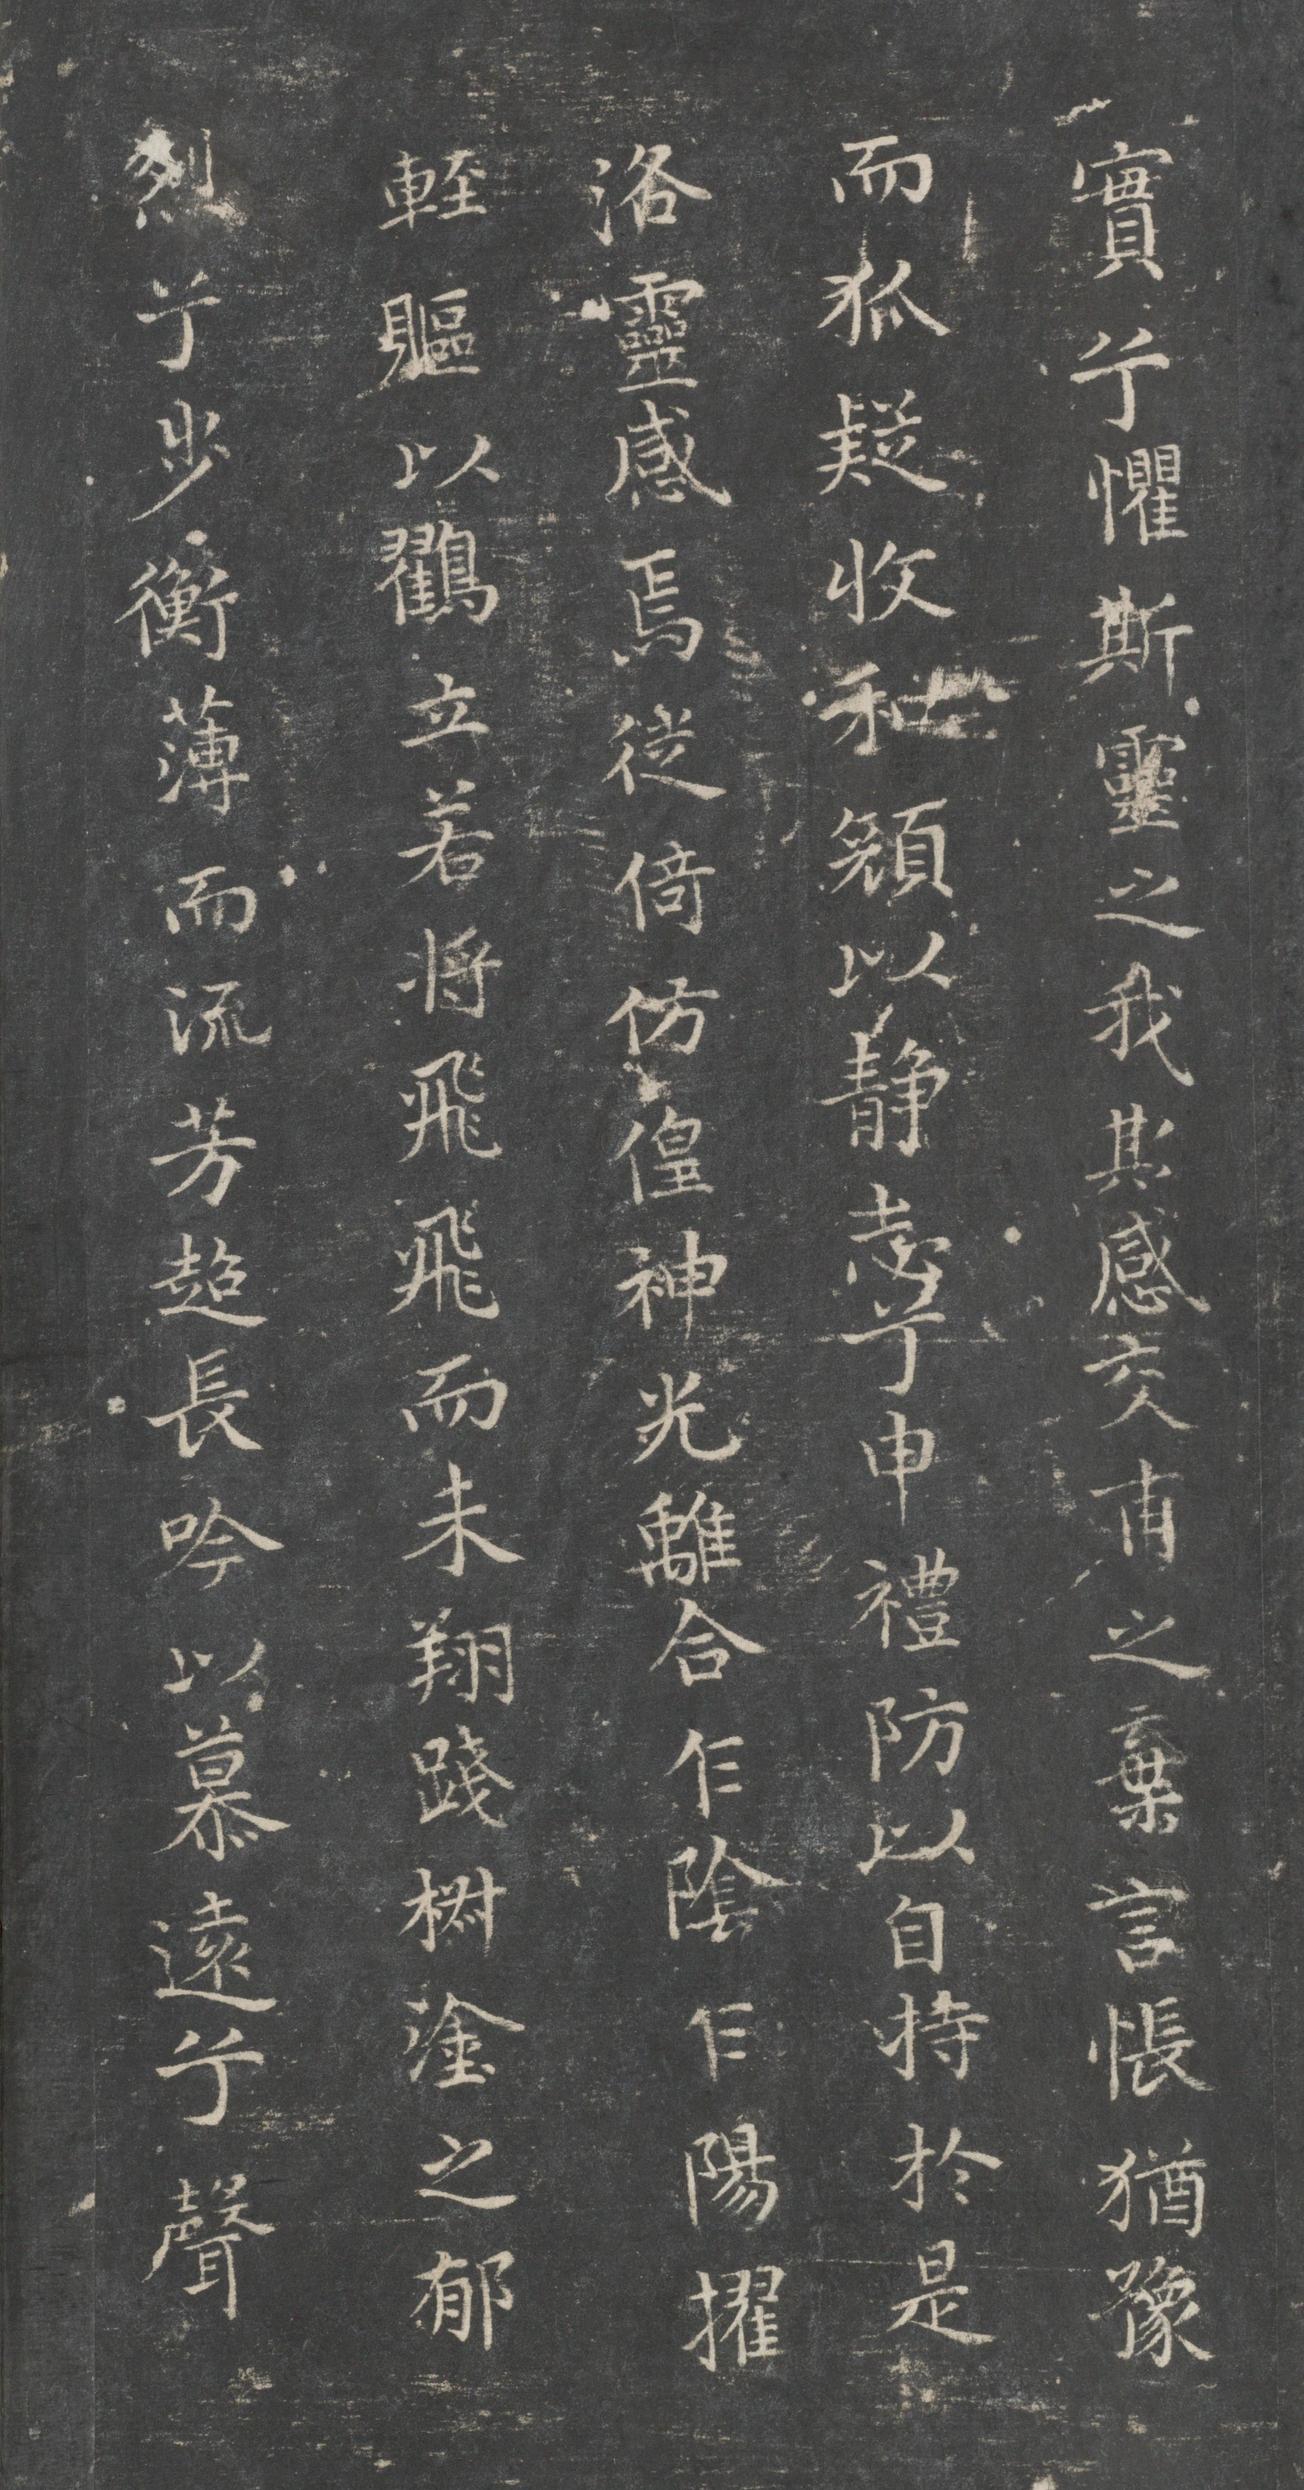 實兮懼斯靈之我欺感交甫之棄言悵猶豫
而狐疑收和顏以静志兮申禮防以自持於是
洛靈感焉徙倚仿偟神光離合乍陰乍陽擢
輊軀以鸖立若将飛飛而未翔踐椒塗之郁
烈兮步衡薄而流芳超長吟以慕遠兮聲